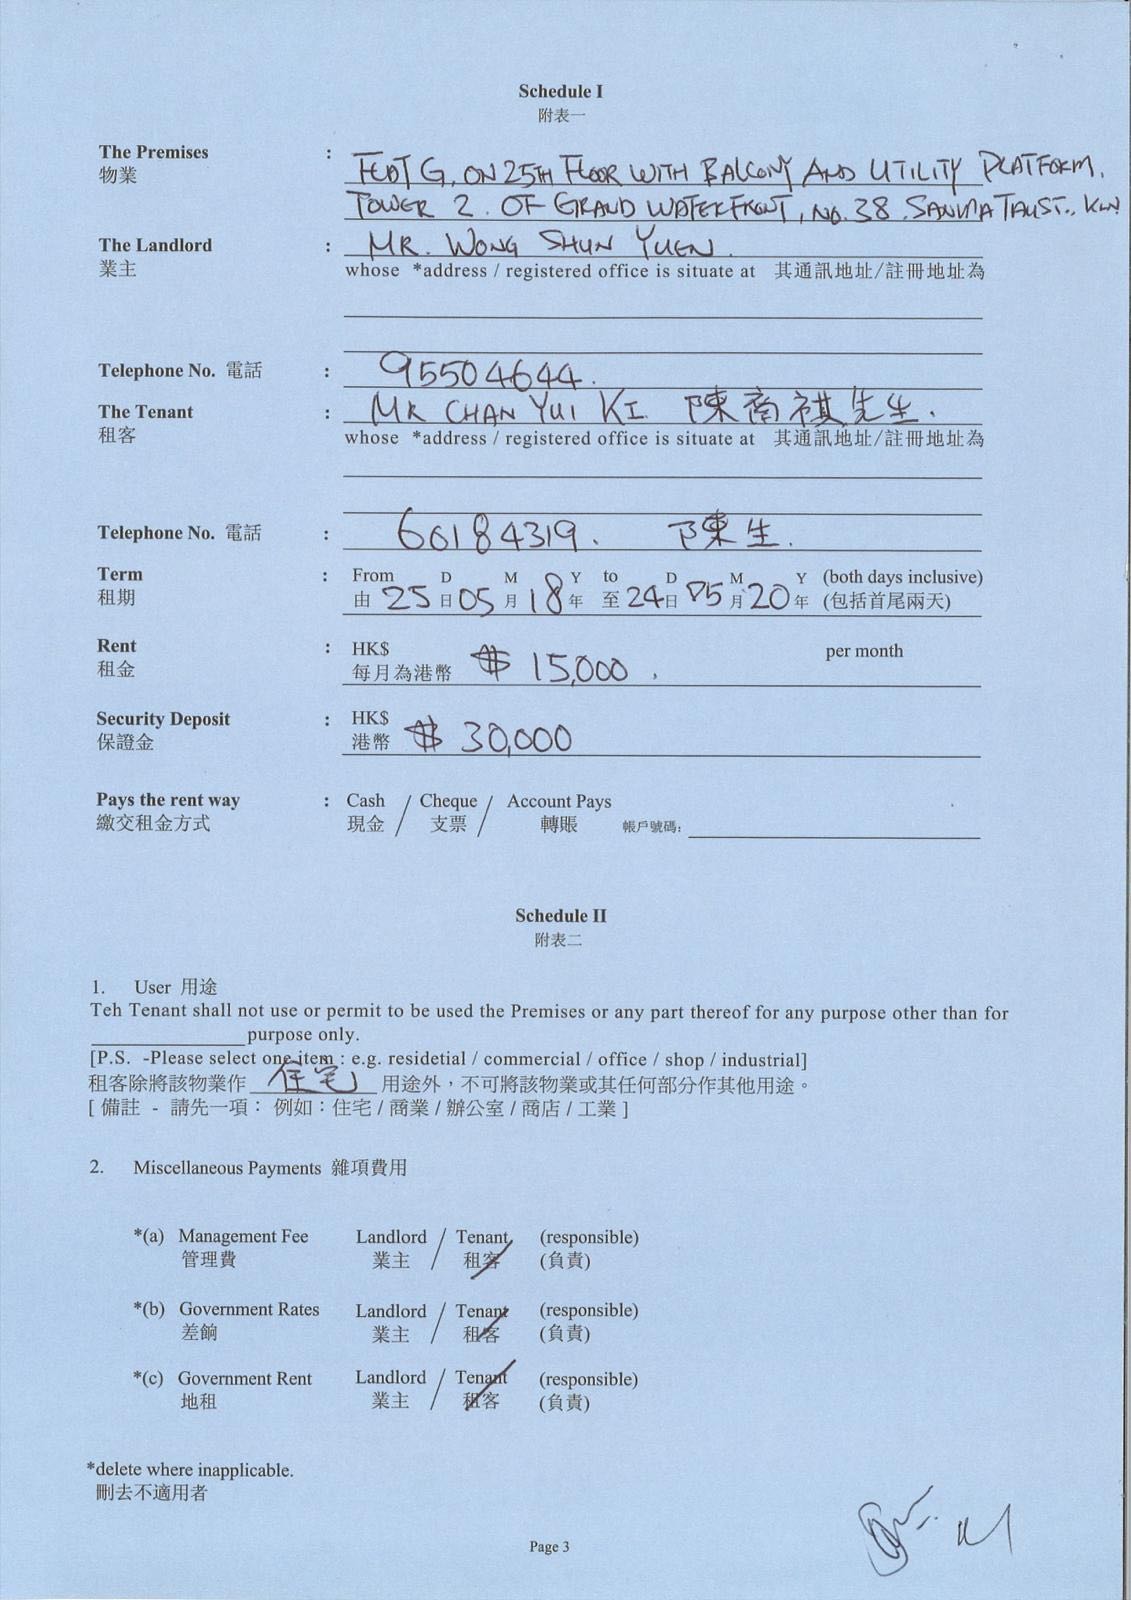 Schedule I
附表一
The Premises : FLAT G, ON 25TH FLOOR WITH BALCONY AND UTILITY PLATFORM,
物業 TOWER 2. OF GRAND WATERFRONT, NO. 38 SAN MA TAU ST., KLN
The Landlord : MR. WONG SHUN YUEN.
業主 whose *address / registered office is situate at 其通訊地址/註冊地址為
Telephone No. 電話 : 95504644.
The Tenant : MR CHAN YUI KI. 陳裔祺先生.
租客 whose *address / registered office is situate at 其通訊地址/註冊地址為
Telephone No. 電話 : 60184319. 陳生.
Term : From D M Y to D M Y (both days inclusive)
租期 由 25 日 05 月 18 年 至 24 日 05 月 20 年 (包括首尾兩天)
Rent : HK$ per month
租金 每月為港幣 $ 15,000.
Security Deposit : HK$
保證金 港幣 $ 30,000
Pays the rent way : Cash / Cheque / Account Pays
繳交租金方式 現金 / 支票 / 轉賬 帳戶號碼:
Schedule II
附表二
1. User 用途
Teh Tenant shall not use or permit to be used the Premises or any part thereof for any purpose other than for
purpose only.
[P.S. -Please select one item : e.g. residetial / commercial / office / shop / industrial]
租客除將該物業作 住宅 用途外，不可將該物業或其任何部分作其他用途。
[ 備註 - 請先一項： 例如：住宅 / 商業 / 辦公室 / 商店 / 工業 ]
2. Miscellaneous Payments 雜項費用
*(a) Management Fee Landlord / Tenant (responsible)
管理費 業主 / 租客 (負責)
*(b) Government Rates Landlord / Tenant (responsible)
差餉 業主 / 租客 (負責)
*(c) Government Rent Landlord / Tenant (responsible)
地租 業主 / 租客 (負責)
*delete where inapplicable.
刪去不適用者
Page 3